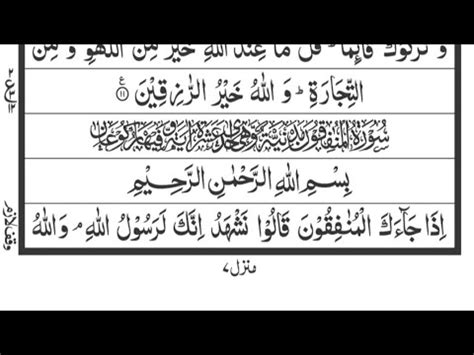 وَ تَرَكُوْكَ قَآئِمًا ؕ قُلْ مَا عِنْدَ اللّٰهِ خَيْرٌ مِّنَ اللَّهْوِ وَ مِنَ
التِّجَارَةِ ؕ وَ اللّٰهُ خَيْرُ الرّٰزِقِيْنَ ۧ ۝۱۱
سُوْرَةُ الْمُنٰفِقُوْنَ مَدَنِيَّةٌ وَّهِيَ اِحْدٰى عَشْرَةَ اٰيَةً وَّفِيْهَا رُكُوْعَانِ
بِسْمِ اللّٰهِ الرَّحْمٰنِ الرَّحِيْمِ
اِذَا جَآءَكَ الْمُنٰفِقُوْنَ قَالُوْا نَشْهَدُ اِنَّكَ لَرَسُوْلُ اللّٰهِ ۘ وَاللّٰهُ
وقف لازم
منزل ۷